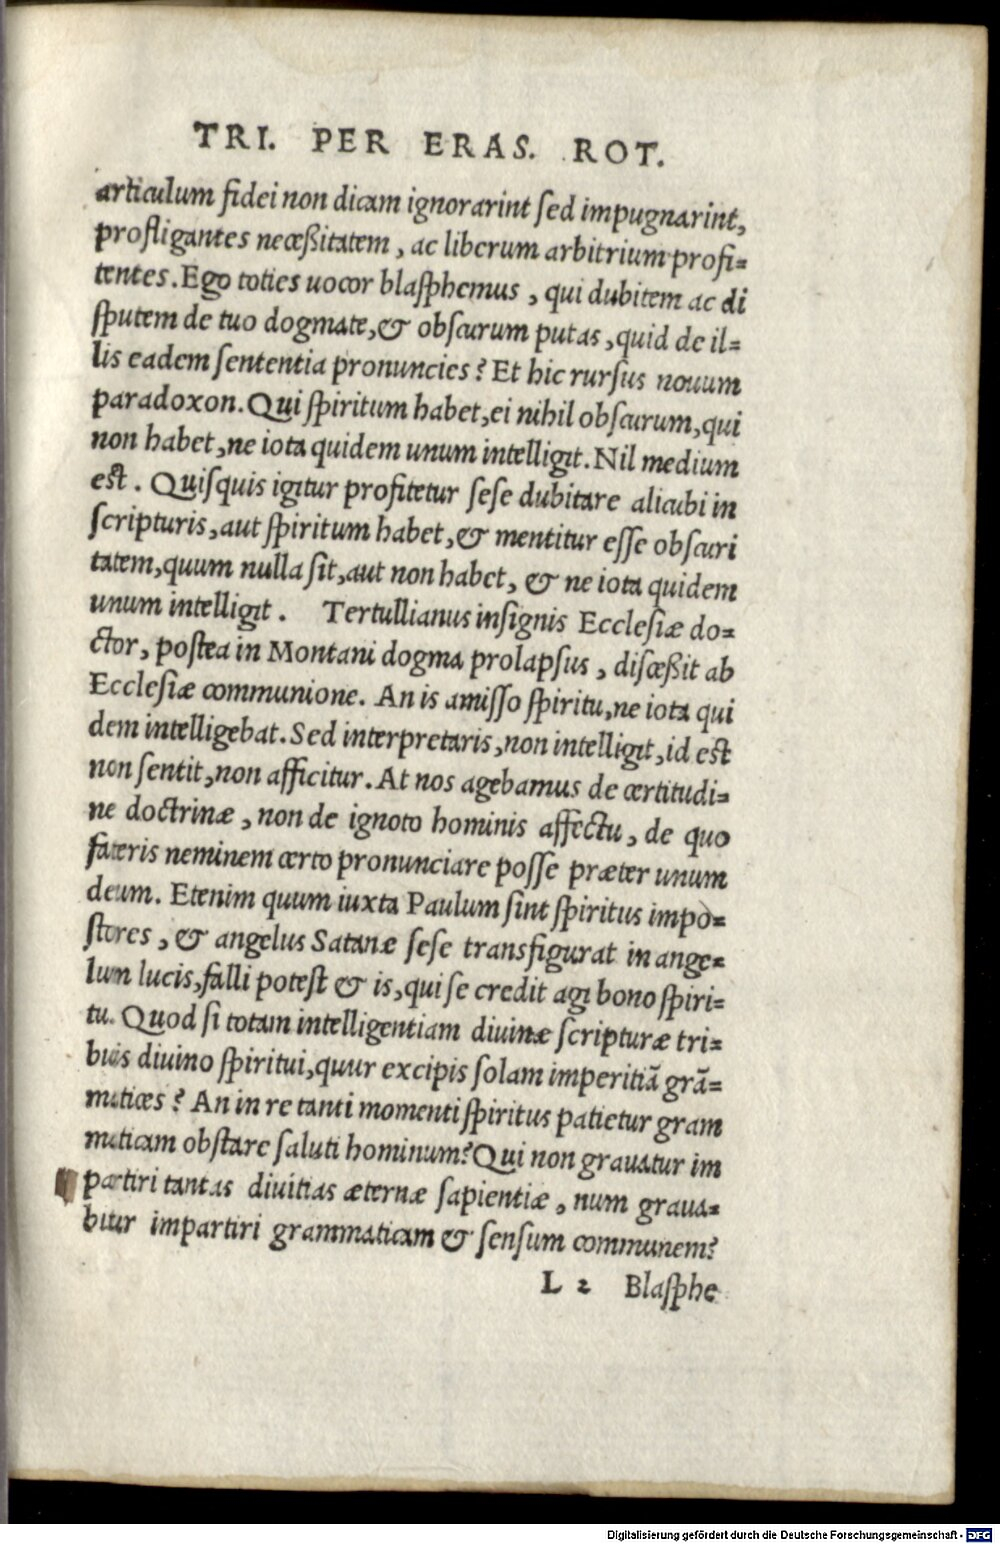 TRI. PER ERAS. ROT.
articulum fidei non dicam ignorarint sed impugnarint,
profligantes neceßitatem, ac liberum arbitrium profi=
tentes. Ego toties uocor blasphemus, qui dubitem ac di
sputem de tuo dogmate, & obscurum putas, quid de il=
lis eadem sententia pronuncies? Et hic rursus nouum
paradoxon. Qui spiritum habet, ei nihil obscurum, qui
non habet, ne iota quidem unum intelligit. Nil medium
est. Quisquis igitur profitetur sese dubitare alicubi in
scripturis, aut spiritum habet, & mentitur esse obscuri
tatem, quum nulla sit, aut non habet, & ne iota quidem
unum intelligit. Tertullianus insignis Ecclesiæ do=
ctor, postea in Montani dogma prolapsus, disceßit ab
Ecclesiæ communione. An is amisso spiritu, ne iota qui
dem intelligebat. Sed interpretaris, non intelligit, id est
non sentit, non afficitur. At nos agebamus de certitudi=
ne doctrinæ, non de ignoto hominis affectu, de quo
fateris neminem certo pronunciare posse præter unum
deum. Etenim quum iuxta Paulum sint spiritus impo=
stores, & angelus Satanæ sese transfigurat in ange=
lum lucis, falli potest & is, qui se credit agi bono spiri=
tu. Quod si totam intelligentiam diuinæ scripturæ tri=
buis diuino spiritui, quur excipis solam imperitiā grā=
matices? An in re tanti momenti spiritus patietur gram
maticam obstare saluti hominum? Qui non grauatur im
partiri tantas diuitias æternæ sapientiæ, num graua=
bitur impartiri grammaticam & sensum communem?
L 2 Blasphe
Digitalisierung gefördert durch die Deutsche Forschungsgemeinschaft - DFG